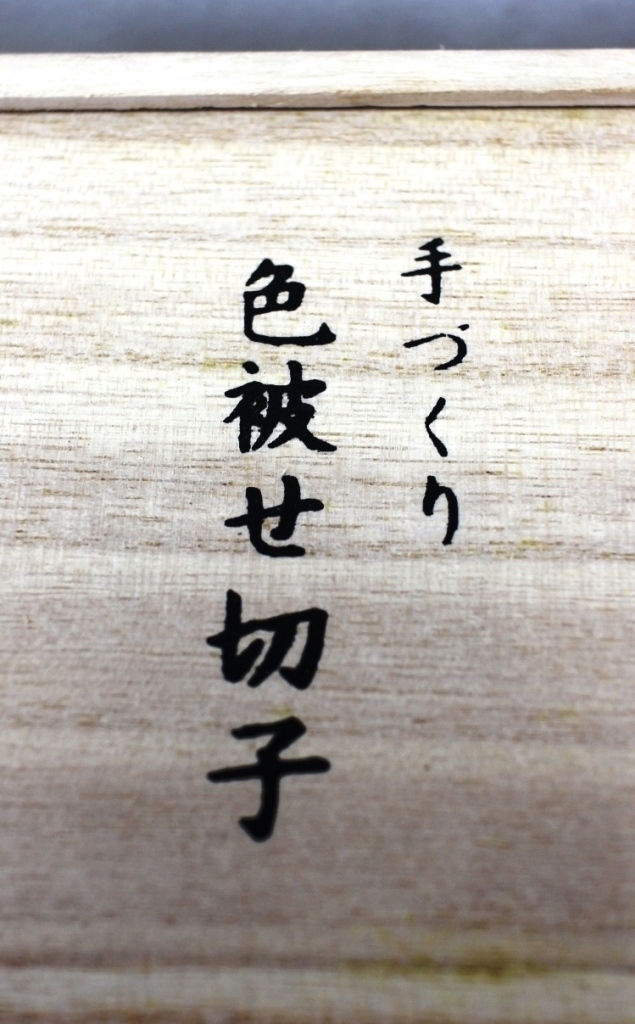 手づくり
色被せ切子